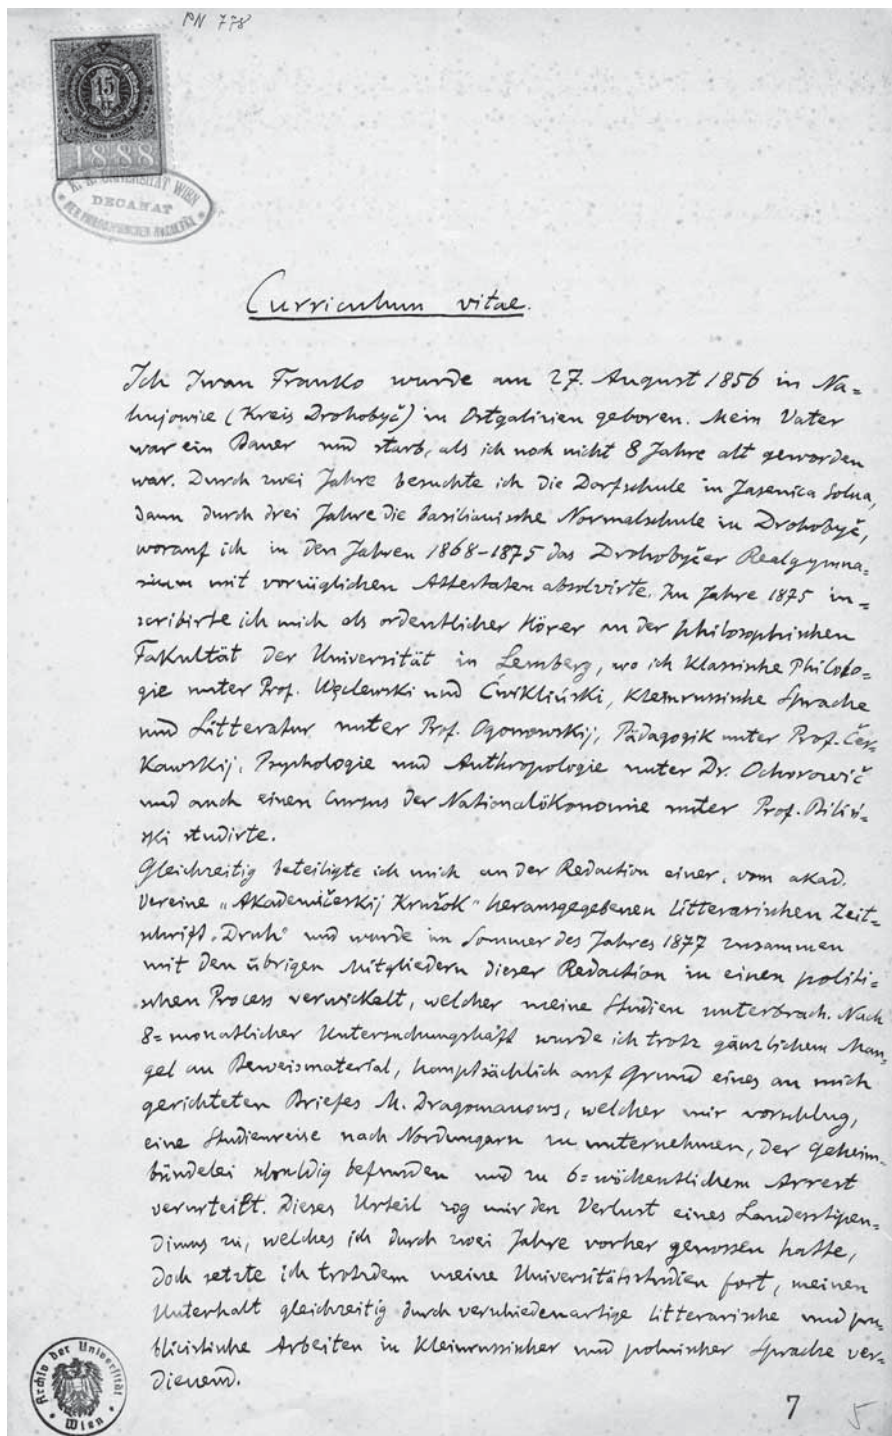 PN 778
15
1888
K. K. UNIVERSITÄT WIEN
DECANAT
DER PHILOSOPHISCHEN FACULTÄT
Curriculum vitae.
Ich Iwan Franko wurde am 27. August 1856 in Na=
hujowice (Kreis Drohobyč) in Ostgalizien geboren. Mein Vater
war ein Bauer und starb, als ich noch nicht 8 Jahre alt geworden
war. Durch zwei Jahre besuchte ich die Dorfschule in Jasenica Solna,
dann durch drei Jahre die basilianische Normalschule in Drohobyč,
worauf ich in den Jahren 1868-1875 das Drohobyčer Realgymna=
sium mit vorzüglichen Attestaten absolvirte. Im Jahre 1875 in=
scribirte ich mich als ordentlicher Hörer an der philosophischen
Fakultät der Universität in Lemberg, wo ich klassische Philolo=
gie unter Prof. Węclewski und Ćwikliński, kleinrussische Sprache
und Litteratur unter Prof. Ogonowskij, Pädagogik unter Prof. Čer=
kawskij, Psychologie und Anthropologie unter Dr. Ochorowič
und auch einen Cursus der Nationalökonomie unter Prof. Biliń=
ski studirte.
Gleichzeitig beteiligte ich mich an der Redaction einer, vom akad.
Vereine „Akademičeskij Kružok" herausgegebenen litterarischen Zeit=
schrift „Druh" und wurde im Sommer des Jahres 1877 zusammen
mit den übrigen Mitgliedern dieser Redaction in einen politi=
schen Process verwickelt, welcher meine Studien unterbrach. Nach
8=monatlicher Untersuchungshaft wurde ich trotz gänzlichem Man=
gel an Beweismaterial, hauptsächlich auf Grund eines an mich
gerichteten Briefes M. Dragomanows, welcher mir vorschlug,
eine Studienreise nach Nordungarn zu unternehmen, der Geheim=
bündelei schuldig befunden und zu 6=wöchentlichem Arrest
verurteilt. Dieses Urteil zog mir den Verlust eines Landesstipen=
diums zu, welches ich durch zwei Jahre vorher genossen hatte,
doch setzte ich trotzdem meine Universitätsstudien fort, meinen
Unterhalt gleichzeitig durch verschiedenartige litterarische und pu=
blicistische Arbeiten in kleinrussischer und polnischer Sprache ver=
dienend.
Archiv der Universität
Wien
7
5